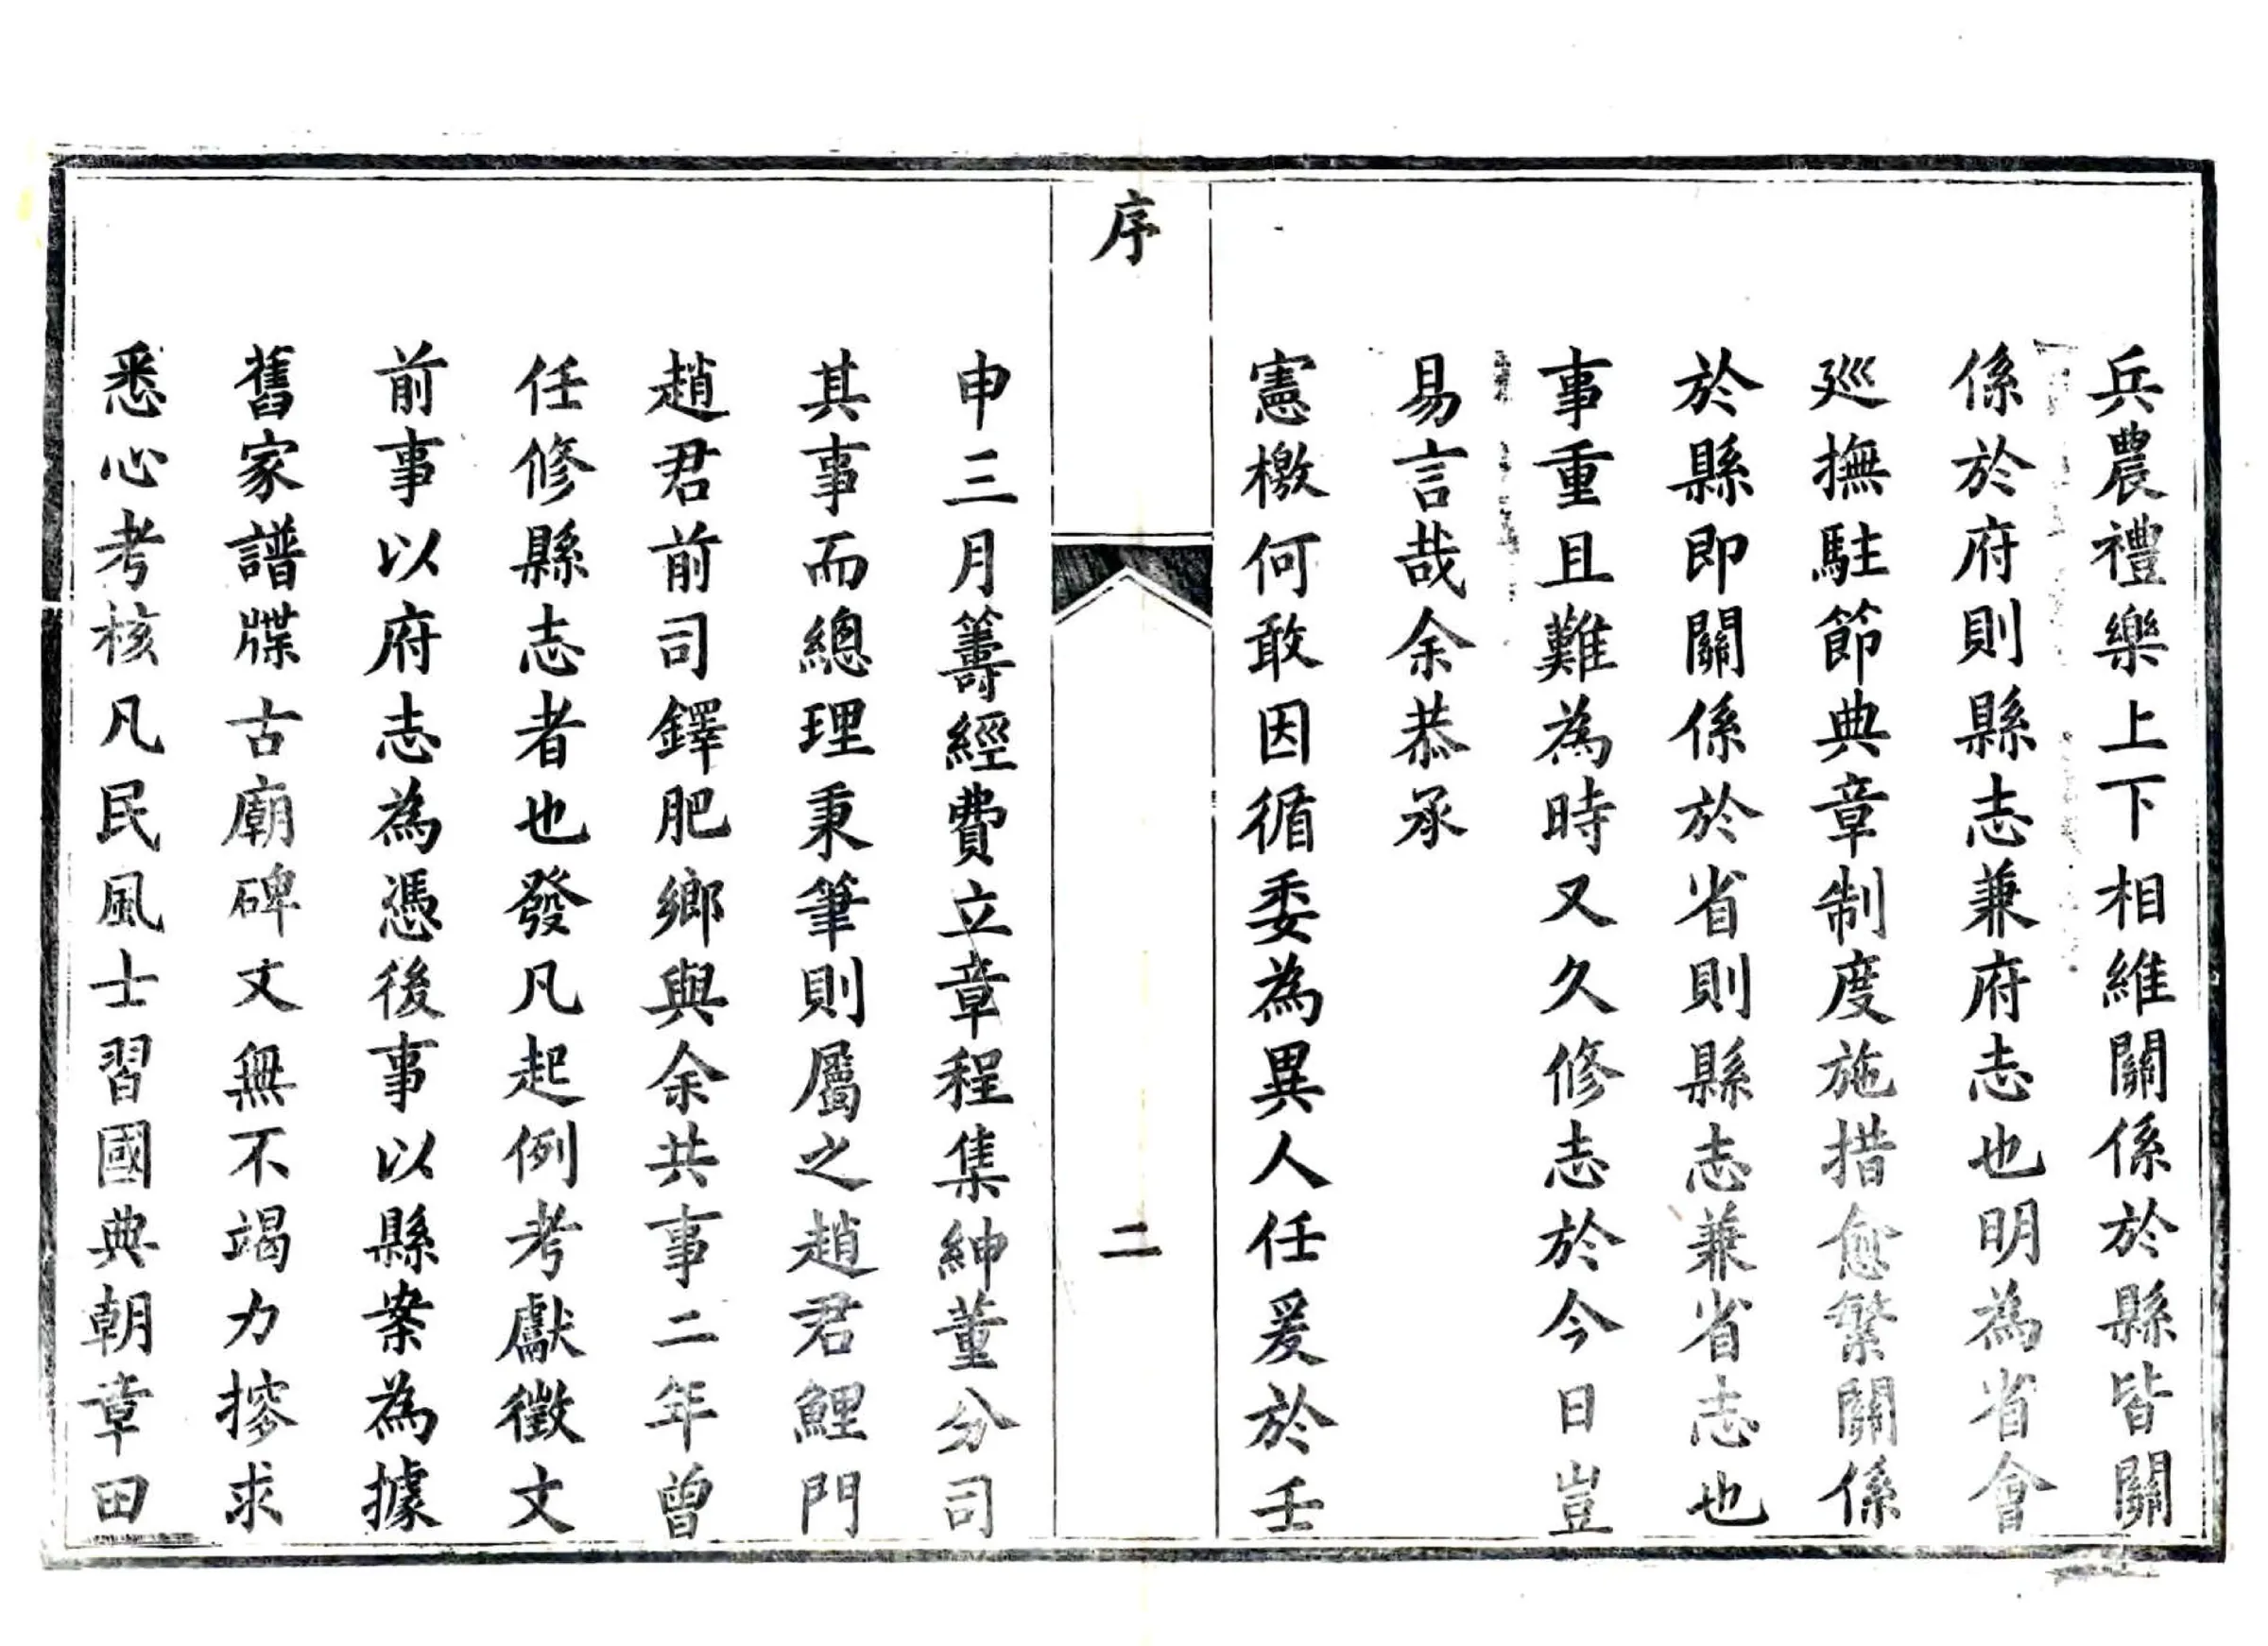 兵農禮樂上下相維關係於縣皆關
係於府則縣志兼府志也明為省會
廵撫駐節典章制度施措愈繁關係
於縣即關係於省則縣志兼省志也
事重且難為時又久修志於今日豈
易言哉余恭承
憲檄何敢因循委為異人任爰於壬
序
二
申三月籌經費立章程集紳董分司
其事而總理秉筆則屬之趙君鯉門
趙君前司鐸肥鄉與余共事二年曾
任修縣志者也發凡起例考獻徵文
前事以府志為憑後事以縣案為據
舊家譜牒古廟碑文無不竭力搜求
悉心考核凡民風士習國典朝章田